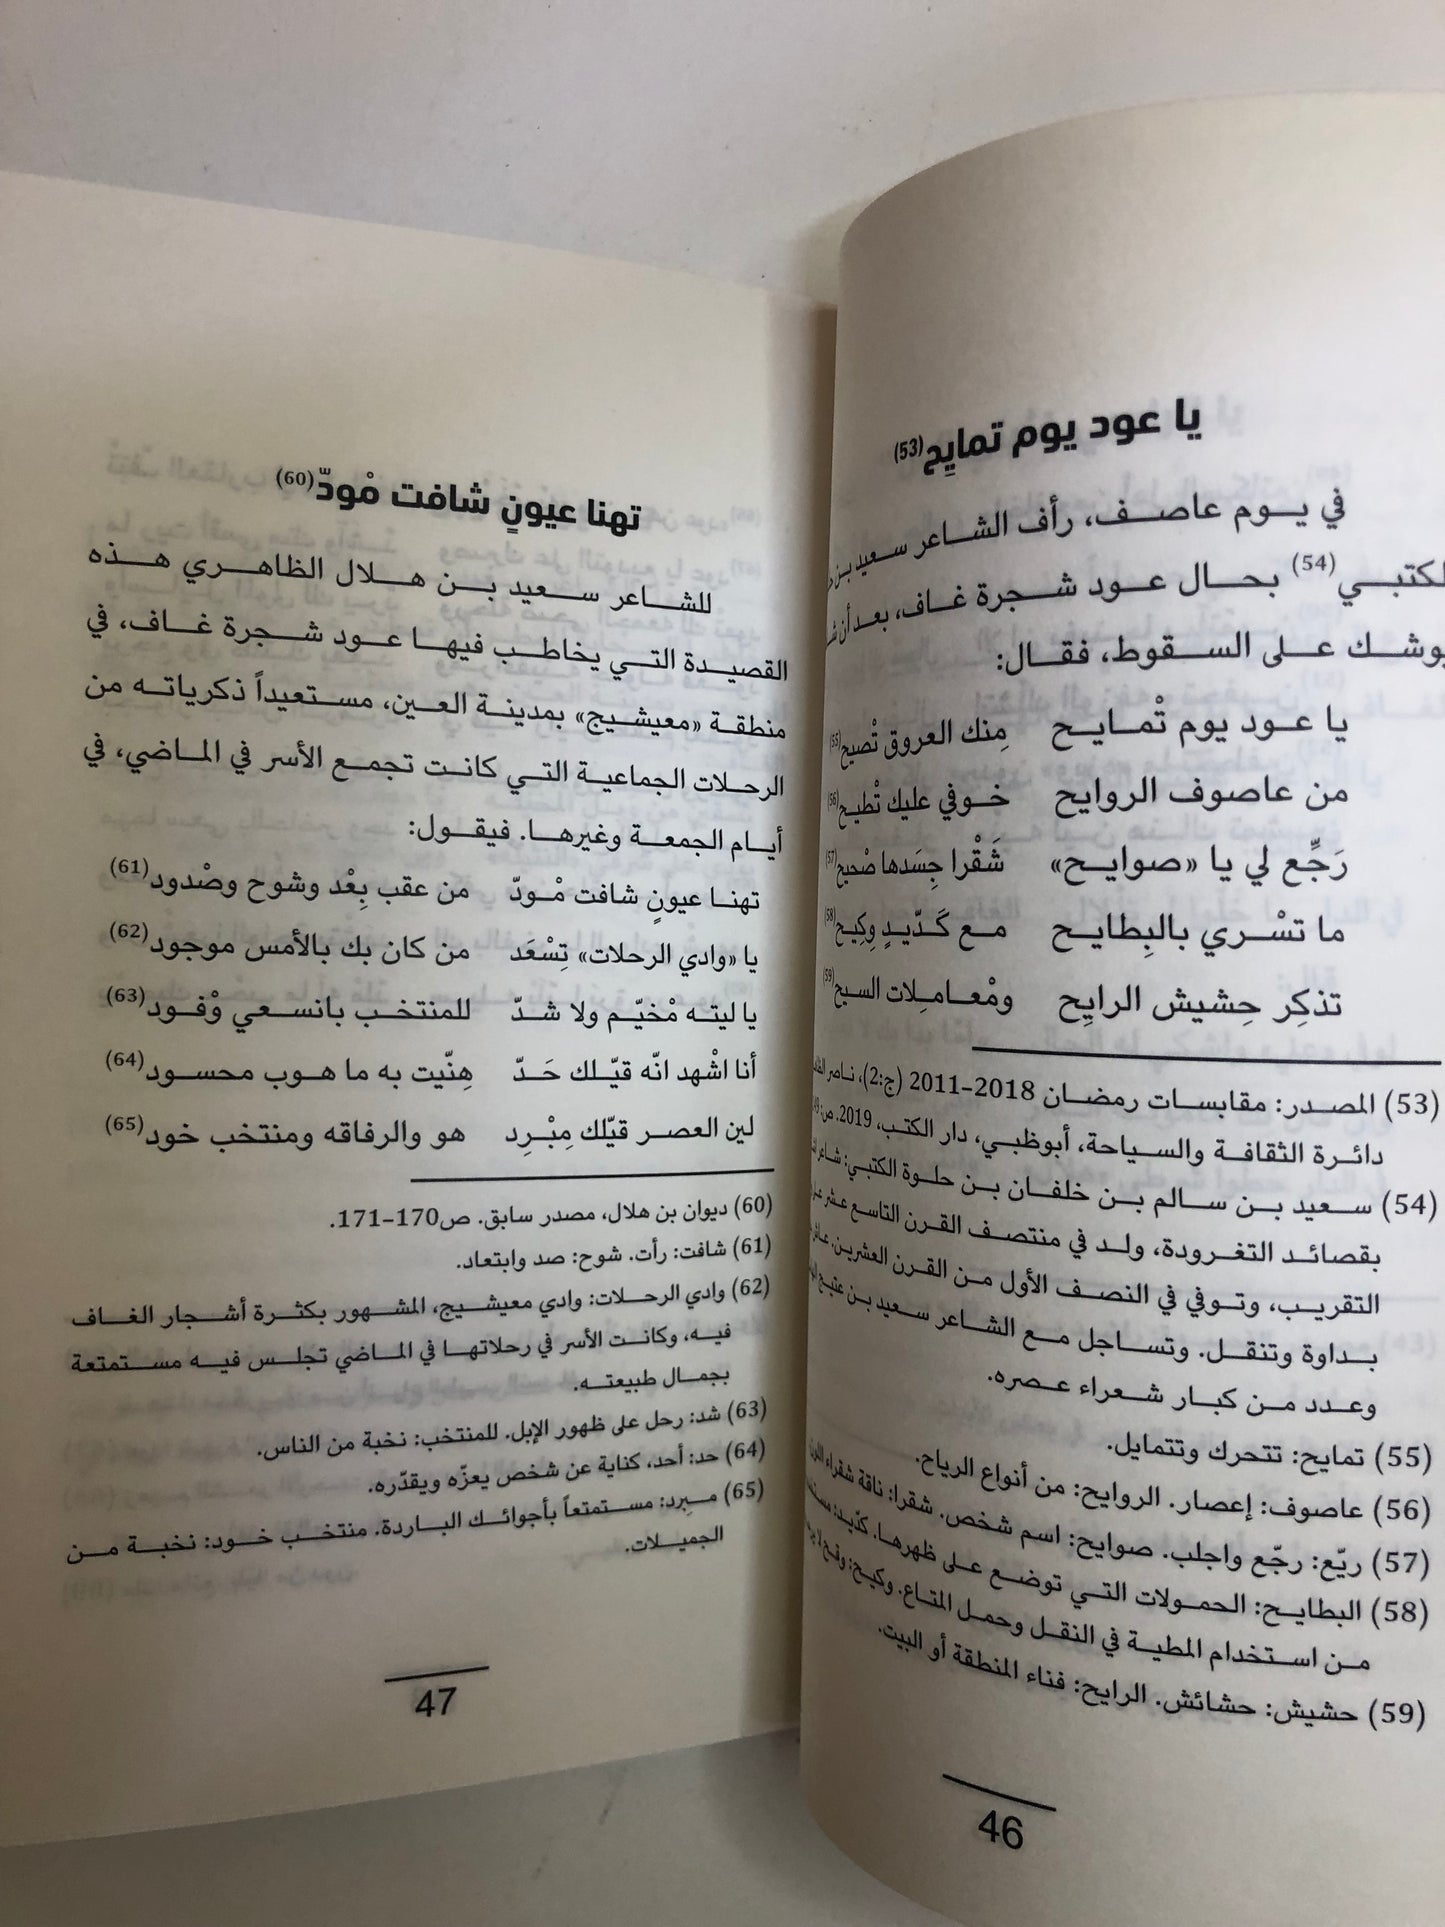 يا عود يوم تمايِح(53)
في يوم عاصف، رأف الشاعر سعيد بن
لكتبي(54) بحال عود شجرة غاف، بعد أن
يوشك على السقوط، فقال:
يا عود يوم تْمايح منك العروق تْصيح(55)
من عاصوف الروايح خوفي عليك تْطيح(56)
رَجِّع لي يا «صوايح» شَقْرا جِسَدها صْحيح(57)
ما تسْري بالبِطايح مع كَدّيدٍ وِكِيح(58)
تذكِر حِشيش الرايِح ومْعاملات السيح(59)
(53) المصدر: مقابسات رمضان 2018-2011 (ج:2)، ناصر
دائرة الثقافة والسياحة، أبوظبي، دار الكتب، 2019. ص:
(54) سعيد بن سالم بن خلفان بن حلوة الكتبي: شاعر
بقصائد التغرودة، ولد في منتصف القرن التاسع عشر على
التقريب، وتوفي في النصف الأول من القرن العشرين. عاش
بداوة وتنقل. وتساجل مع الشاعر سعيد بن عتيج
وعدد من كبار شعراء عصره.
(55) تمايح: تتحرك وتتمايل.
(56) عاصوف: إعصار. الروايح: من أنواع الرياح.
(57) ريّع: رجّع واجلب. صوايح: اسم شخص. شقرا: ناقة شقراء اللون
(58) البطايح: الحمولات التي توضع على ظهرها. كدّيد:
من استخدام المطية في النقل وحمل المتاع. وكيح: وقح لا
(59) حشيش: حشائش. الرايح: فناء المنطقة أو البيت.
46
تهنا عيونٍ شافت مْودّ(60)
للشاعر سعيد بن هلال الظاهري هذه
القصيدة التي يخاطب فيها عود شجرة غاف، في
منطقة «معيشيج» بمدينة العين، مستعيداً ذكرياته من
الرحلات الجماعية التي كانت تجمع الأسر في الماضي، في
أيام الجمعة وغيرها. فيقول:
تهنا عيونٍ شافت مْودّ من عقب بِعْد وشوح وصْدود(61)
يا «وادي الرحلات» تِسْعَد من كان بك بالأمس موجود(62)
يا ليته مْخيّم ولا شدّ للمنتخب بانسعي وْفود(63)
أنا اشْهد انّه قيّلك حَدّ هِنّيت به ما هوب محسود(64)
لين العصر قيّلك مِبْرِد هو والرفاقه ومنتخب خود(65)
(60) ديوان بن هلال، مصدر سابق. ص170-171.
(61) شافت: رأت. شوح: صد وابتعاد.
(62) وادي الرحلات: وادي معيشيج، المشهور بكثرة أشجار الغاف
فيه، وكانت الأسر في رحلاتها في الماضي تجلس فيه مستمتعة
بجمال طبيعته.
(63) شد: رحل على ظهور الإبل. للمنتخب: نخبة من الناس.
(64) حد: أحد، كناية عن شخص يعزّه ويقدّره.
(65) مبرِد: مستمتعاً بأجوائك الباردة. منتخب خود: نخبة من
الجميلات.
47